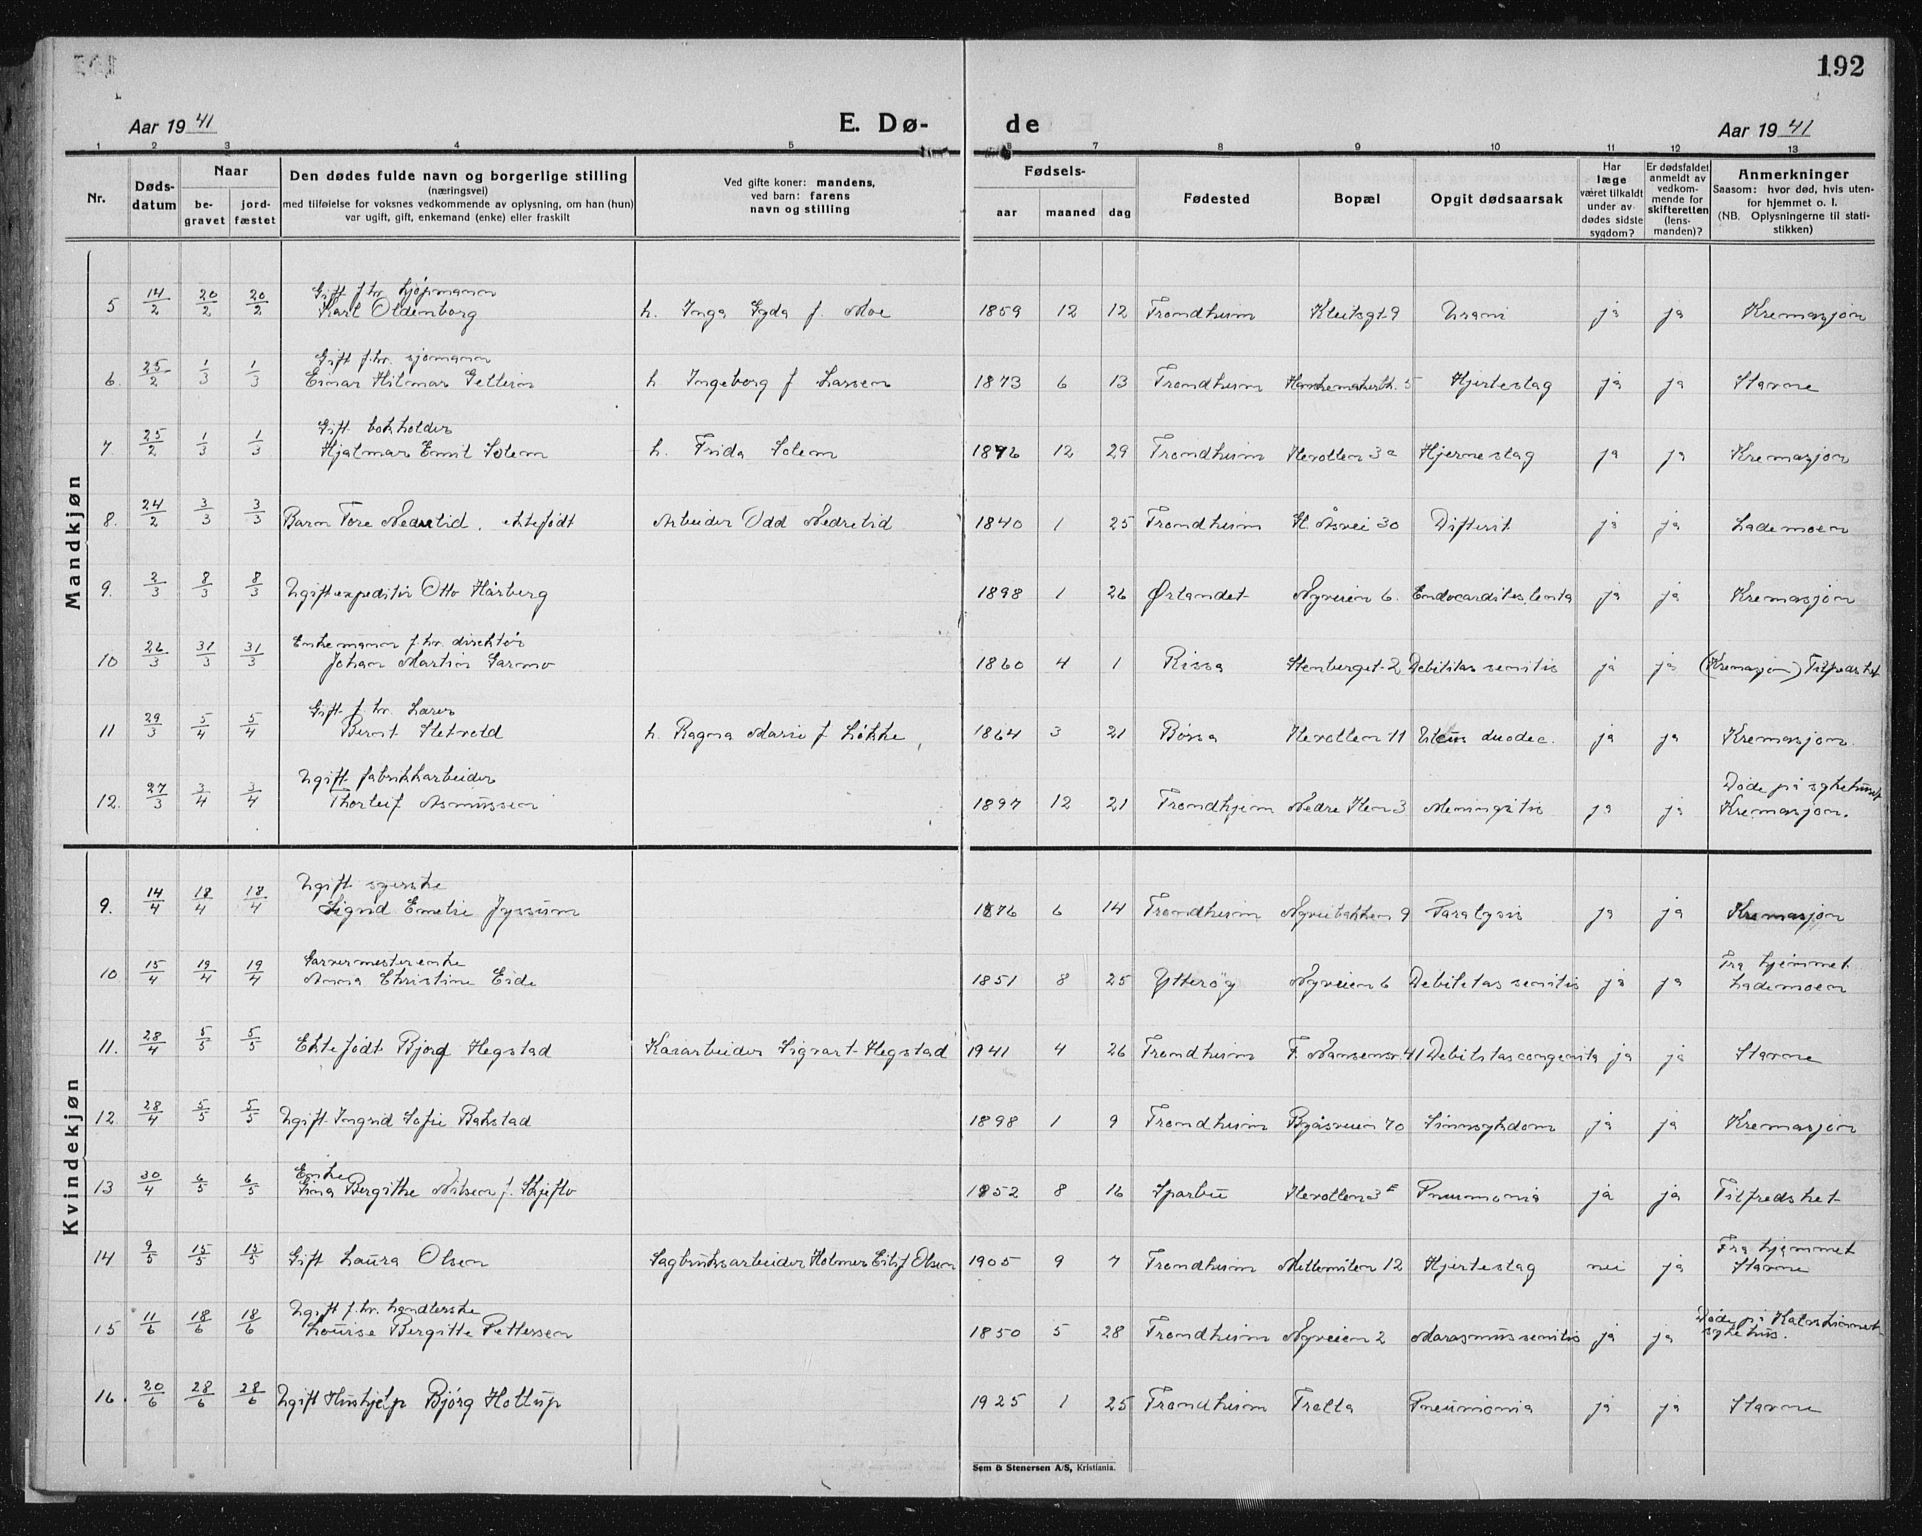 192
Aar 1941
E. Dø-
de
Aar 1941
1 2 3 4 5 6 7 8 9 10 11 12 13
Nr.
Døds-
datum
Naar
be-
gravet
jord-
fæstet
Den dødes fulde navn og borgerlige stilling
(næringsvei)
med tilføielse for voksnes vedkommende av oplysning, om han (hun)
var ugift, gift, enkemand (enke) eller fraskilt
Ved gifte koner: mandens,
ved barn: farens
navn og stilling
Fødsels-
aar
maaned
dag
Fødested
Bopæl
Opgit dødsaarsak
Har
læge
været tilkaldt
under av-
dødes sidste
sygdom?
Er dødsfaldet
anmeldt av
vedkom-
mende for
skifteretten
(lens-
manden)?
Anmerkninger
Saasom: hvor død, hvis uten-
for hjemmet o. l.
(NB. Oplysningerne til stati-
stikken)
Mandkjøn
Gift f. hv. kjøpmann
5 14/2 20/2 20/2 Karl Oldenborg h. Inga Gyda f. Moe 1859 12 12 Trondheim Kleitsgt. 9 Urami ja ja Kremasjon
Gift f. hv. sjømann
6. 25/2 1/3 1/3 Einar Hilmar h. Ingeborg f. Larsen 1873 6 13 Trondheim 5 Hjerteslag ja ja Stavne
Gift bokholder
7. 25/2 1/3 1/3 Hjalmar Emil Solem h. Frida Solem 1876 12 29 Trondheim Ilevollen 3a Hjerneslag ja ja Kremasjon
8. 24/2 3/3 3/3 Barn Tore Nedrelid, ektefødt Arbeider Odd Nedrelid 1940 1 25 Trondheim Åsvei 30 Difterit ja ja Lademoen
9. 2/3 8/3 8/3 Ugift expeditør Otto Hårberg 1898 1 26 Ørlandet Nyveien 6. Endocarditis lenta ja ja Kremasjon
Enkemann f. hv. direktør
10 26/3 31/3 31/3 Johan Martin Sarmo 1860 4 1 Rissa Stenberget. 2 Debilitas senilis ja ja (Kremasjon) Tilfredshet
Gift f. hv. Lærer
11 29/3 5/4 5/4 Bernt Hetvold h. Ragna Marie f. Løkke, 1864 3 21 Børsa Ilevollen 11 Ulcus duodec. ja ja Kremasjon.
Ugift fabrikkarbeider Døde på sykehuset
12. 27/3 3/4 3/4 Thorleif Asmussen 1897 12 21 Trondhjem Nedre Ilen 3 Meningitis ja ja Kremasjon.
Kvindekjøn
Ugift syerske
9. 14/4 18/4 18/4 Sigrid Emelie Jyssum 1876 6 14 Trondheim Nyveibakken 9 Paralysis ja ja Kremasjon
Garvermesterenke Fra hjemmet
10 15/4 19/4 19/4 Anna Christine Eide 1851 8 25 Ytterøy Nyveien 6 Debilitas senilis ja ja Lademoen
11. 28/4 5/5 5/5 Ektefødt Bjørg Hegstad Kaiarbeider Sigvart Hegstad 1941 4 26 Trondheim F. Nansensv. 41 Debilitas congenita ja ja Stavne
12. 28/4 5/5 5/5 Ugift Ingrid Sofie Bakstad 1898 1 9 Trondheim Byåsveien 70 Sinnsykdom ja ja Kremasjon
Enke
13 30/4 6/5 6/5 Gina Bergithe Nilsen f. Skjefto 1852 8 16 Sparbu Ilevollen 3E Pneumonia ja ja Tilfredshet
Fra hjemmet
14 9/5 15/5 15/5 Gift Laura Olsen Sagbruksarbeider Holmer Eilif Olsen 1905 9 7 Trondheim Mellemilen 12 Hjerteslag nei ja Stavne
Ugift f. hv. handlerske Døde på
15 11/6 18/6 18/6 Louise Bergitte Pettersen 1850 5 28 Trondheim Nyveien 2 Marasmus senilis ja ja sykehus.
16. 20/6 28/6 28/6 Ugift Hushjelp Bjørg Hollup 1925 1 25 Trondheim Trolla Pneumonia ja ja Stavne
Sem & Stenersen A/S, Kristiania.